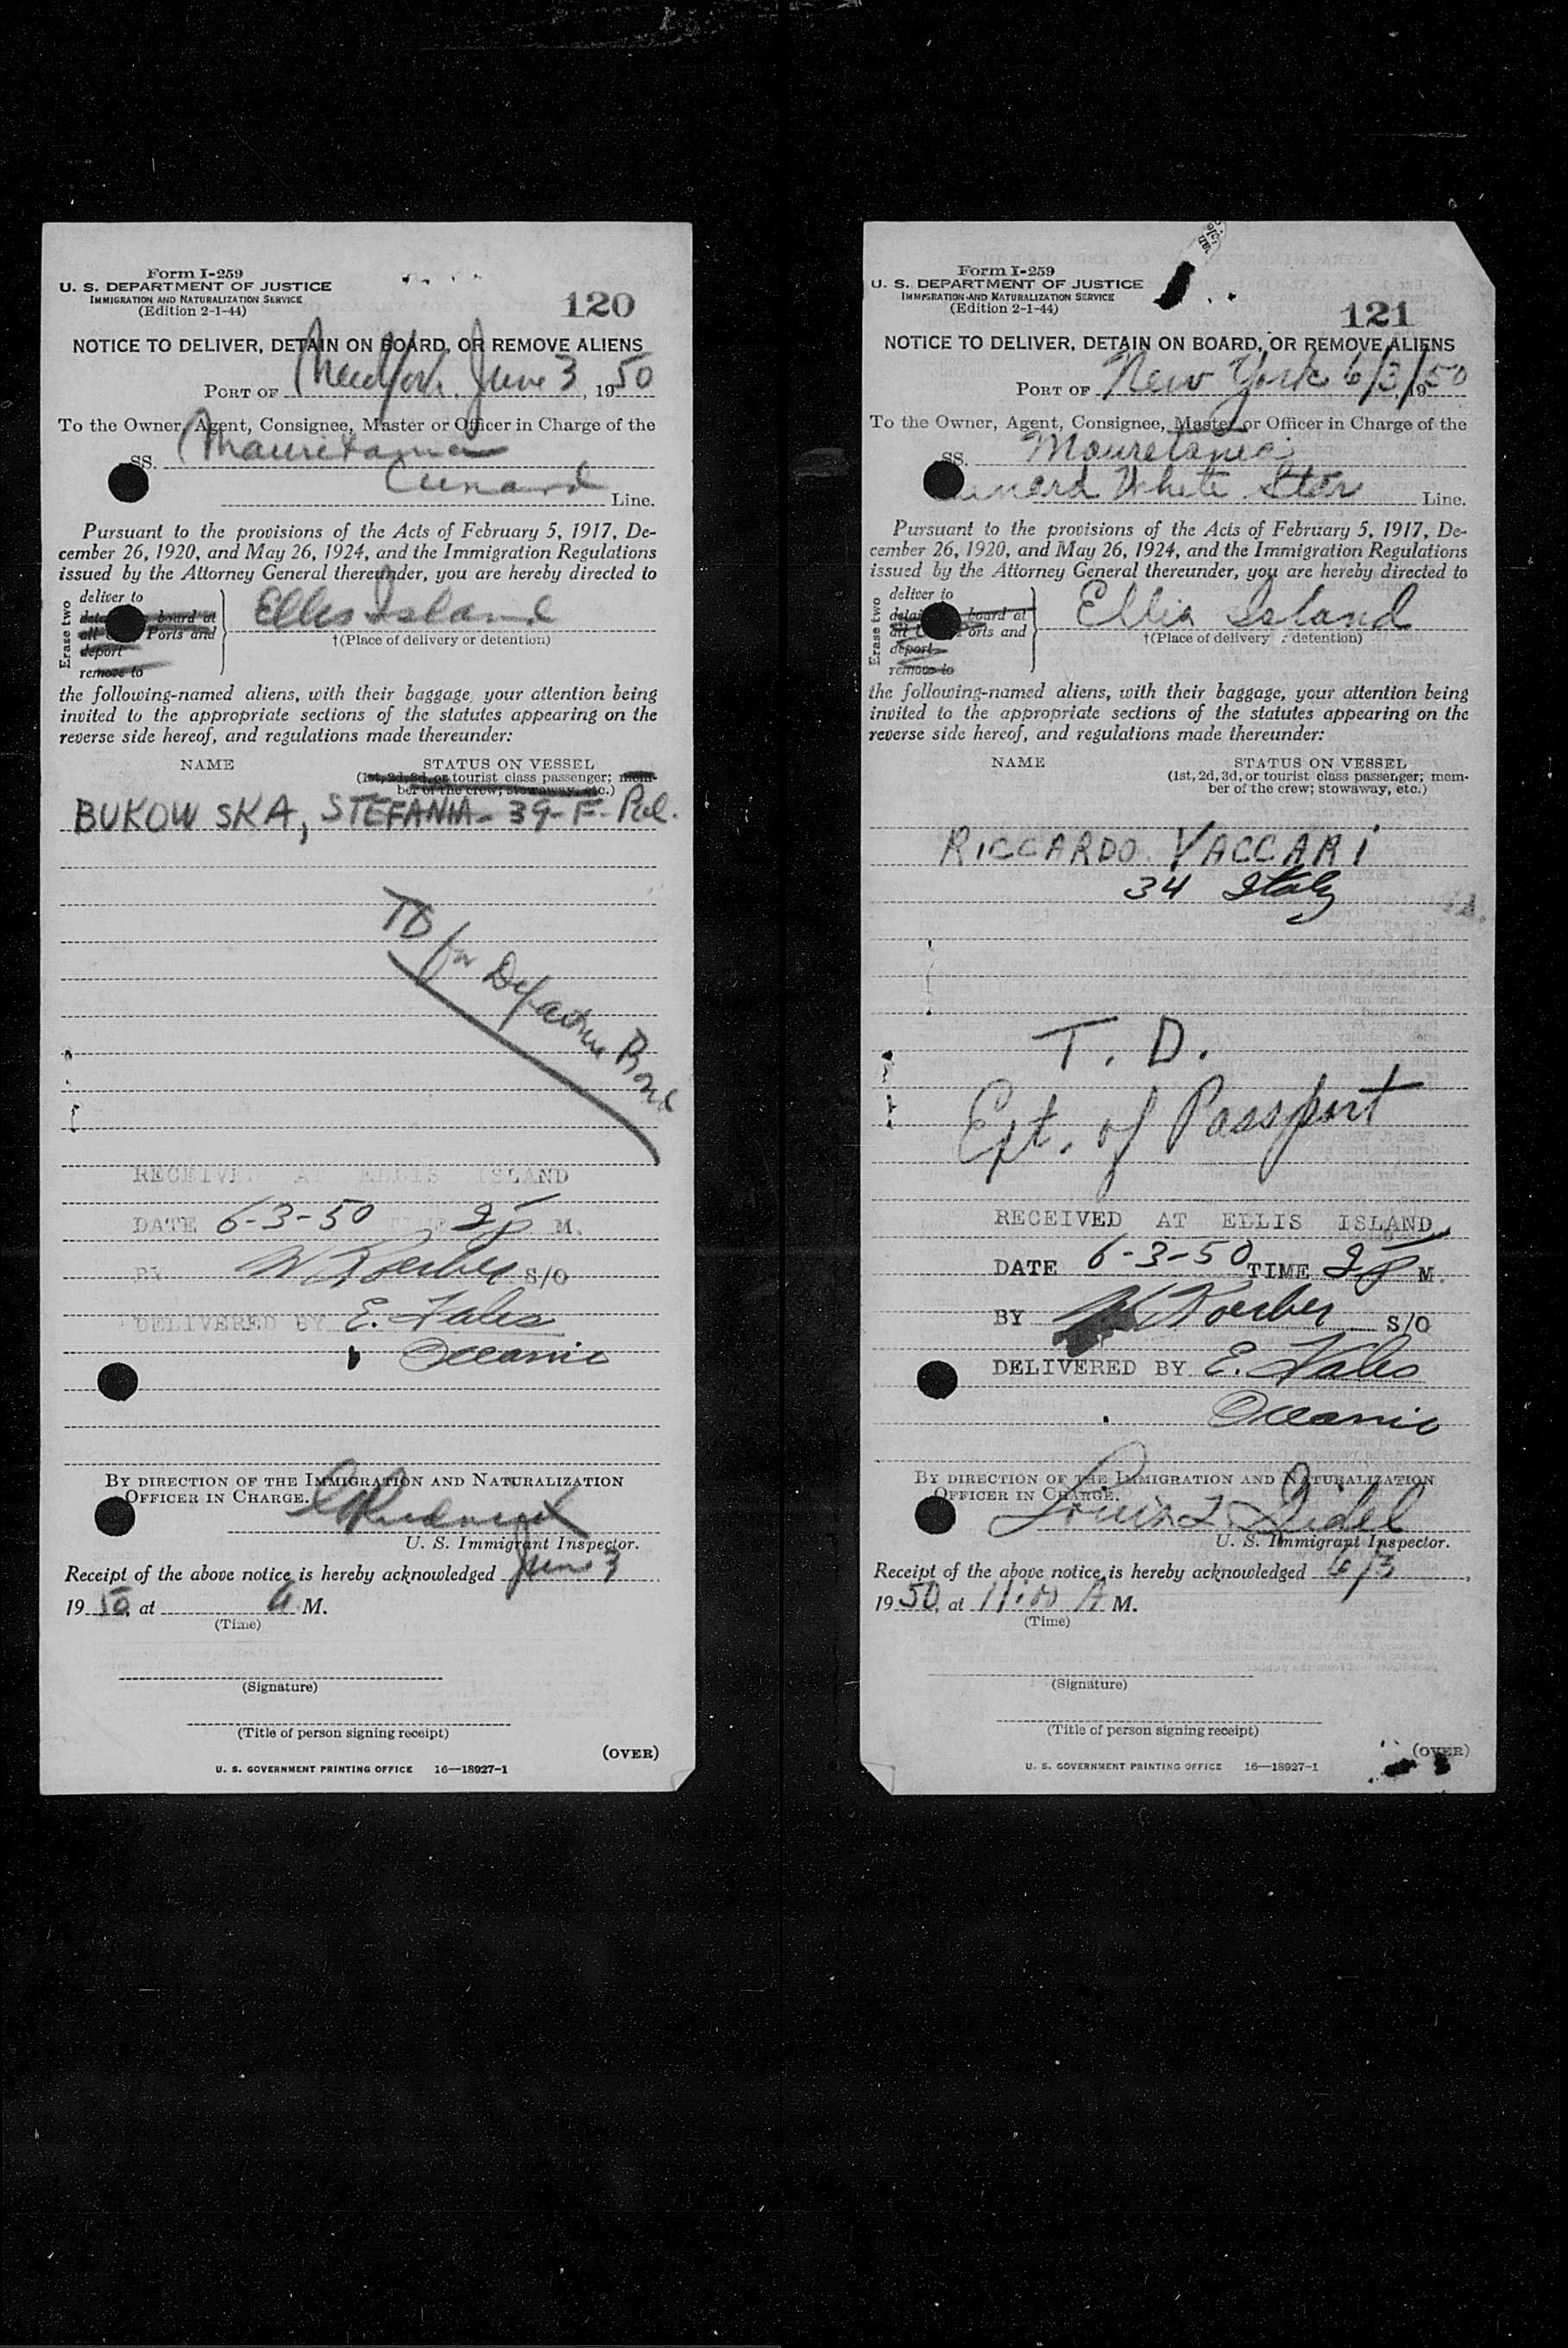 Form I-259
U. S. DEPARTMENT OF JUSTICE
IMMIGRATION AND NATURALIZATION SERVICE
(Edition 2-1-44)
120
NOTICE TO DELIVER, DETAIN ON BOARD, OR REMOVE ALIENS
PORT OF New York June 3, 1950
To the Owner, Agent, Consignee, Master or Officer in Charge of the
SS. Mauretania
Cunard Line.
Pursuant to the provisions of the Acts of February 5, 1917, De-
cember 26, 1920, and May 26, 1924, and the Immigration Regulations
issued by the Attorney General thereunder, you are hereby directed to
Erase two
deliver to
board at
Ports and
deport
remove to
Ellis Island
†(Place of delivery or detention)
the following-named aliens, with their baggage, your attention being
invited to the appropriate sections of the statutes appearing on the
reverse side hereof, and regulations made thereunder:
NAME STATUS ON VESSEL
(1st, 2d, 3d, or tourist class passenger; mem-
ber of the crew; stowaway, etc.)
BUKOWSKA, STEFANIA - 39 - F - Pol.
TD for Departure Bond
RECEIVED AT ELLIS ISLAND
DATE 6-3-50 TIME 2 P M.
BY Koerber S/O
DELIVERED BY E. Fales
Oceanic
BY DIRECTION OF THE IMMIGRATION AND NATURALIZATION
OFFICER IN CHARGE.
U. S. Immigrant Inspector.
Receipt of the above notice is hereby acknowledged June 3
1950, at A M.
(Time)
(Signature)
(Title of person signing receipt)
(OVER)
U. S. GOVERNMENT PRINTING OFFICE 16—18927-1
Form I-259
U. S. DEPARTMENT OF JUSTICE
IMMIGRATION AND NATURALIZATION SERVICE
(Edition 2-1-44)
121
NOTICE TO DELIVER, DETAIN ON BOARD, OR REMOVE ALIENS
PORT OF New York 6/3/, 1950
To the Owner, Agent, Consignee, Master or Officer in Charge of the
SS. Mauretania
Cunard White Star Line.
Pursuant to the provisions of the Acts of February 5, 1917, De-
cember 26, 1920, and May 26, 1924, and the Immigration Regulations
issued by the Attorney General thereunder, you are hereby directed to
Erase two
deliver to
board at
Ports and
deport
remove to
Ellis Island
†(Place of delivery detention)
the following-named aliens, with their baggage, your attention being
invited to the appropriate sections of the statutes appearing on the
reverse side hereof, and regulations made thereunder:
NAME STATUS ON VESSEL
(1st, 2d, 3d, or tourist class passenger; mem-
ber of the crew; stowaway, etc.)
RICCARDO VACCARI
34 Italy
T. D.
Ext. of Passport
RECEIVED AT ELLIS ISLAND
DATE 6-3-50 TIME 2 P M.
BY Koerber S/O
DELIVERED BY E. Fales
Oceanic
BY DIRECTION OF THE IMMIGRATION AND NATURALIZATION
OFFICER IN CHARGE.
Louis
U. S. Immigrant Inspector.
Receipt of the above notice is hereby acknowledged 6/3,
1950, at 11:00 A M.
(Time)
(Signature)
(Title of person signing receipt)
(OVER)
U. S. GOVERNMENT PRINTING OFFICE 16—18927-1